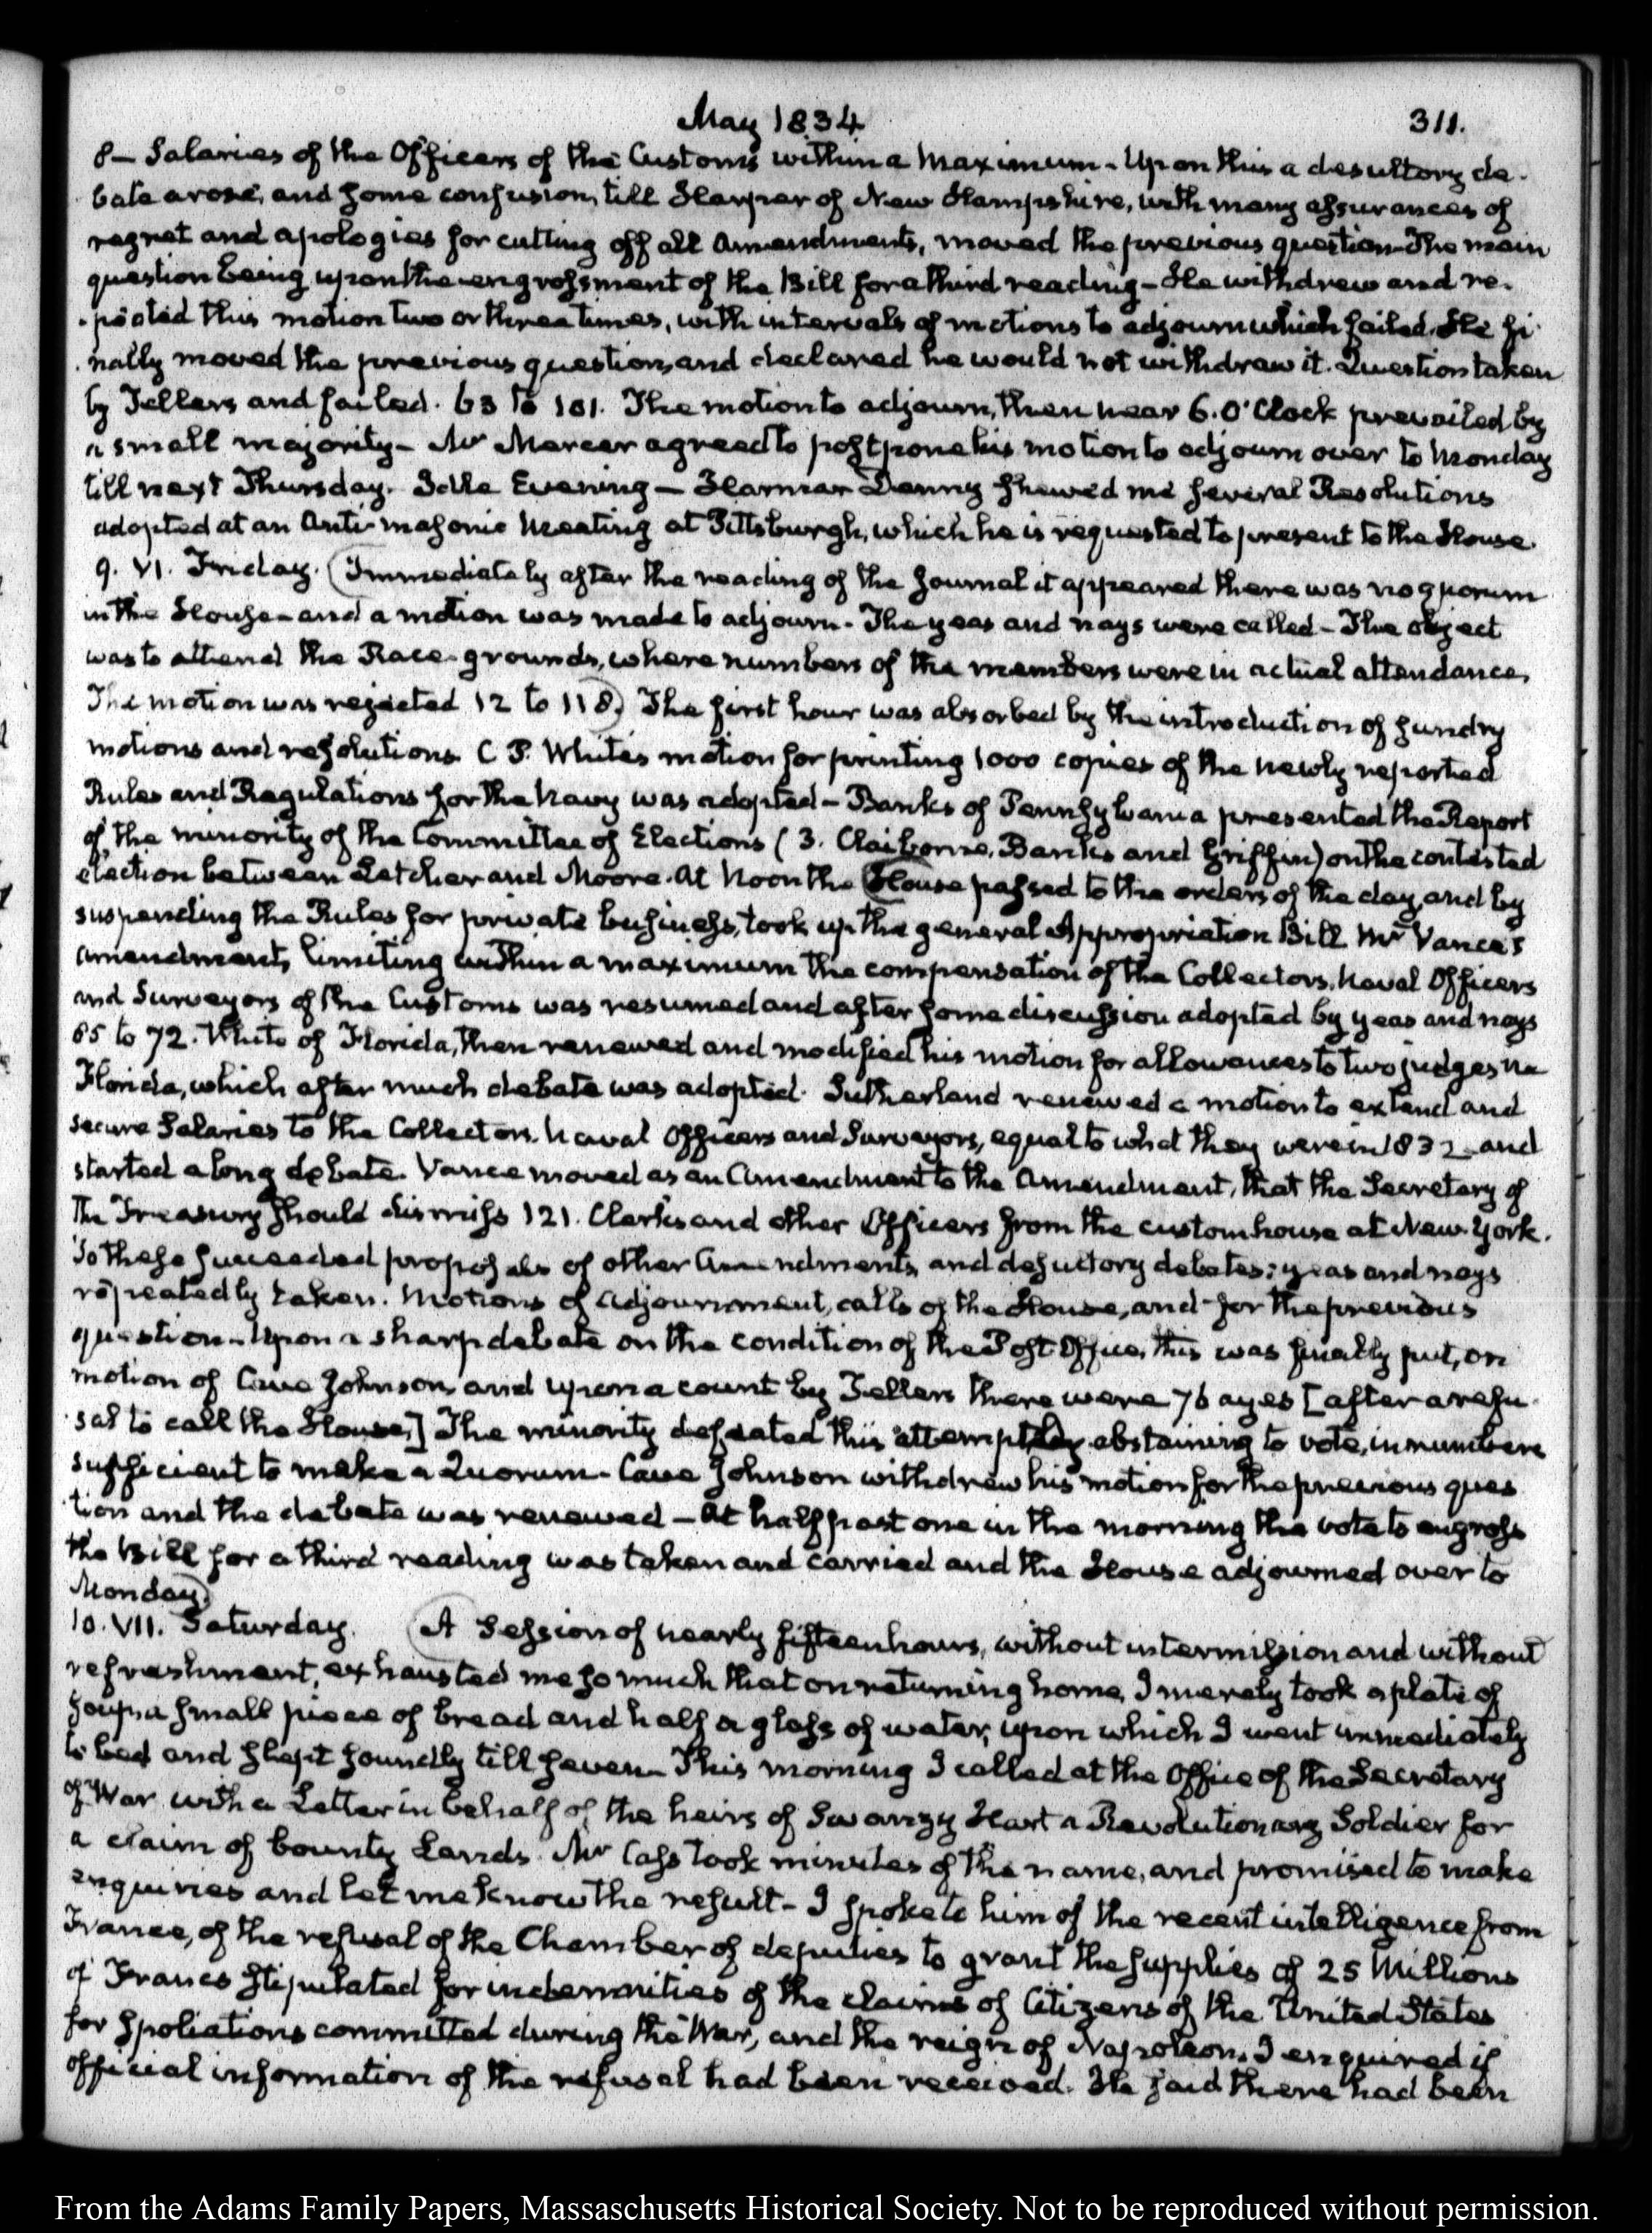 May 1834
311.
8— Salaries of the Officers of the Customs within a maximum - Upon this a desultory de-
bate arose, and some confusion, till Harper of New Hampshire, with many assurances of
regret and apologies for cutting off all Amendments, moved the previous question - The main
question being upon the engrossment of the Bill for a third reading - He withdrew and re-
peated this motion two or three times, with intervals of motions to adjourn which failed. He fi-
nally moved the previous question, and declared he would not withdraw it. Question taken
by Tellers and failed. 63 to 101. The motion to adjourn, then near 6. O'Clock prevailed by
a small majority - Mr Mercer agreed to postpone his motion to adjourn over to Monday
till next Thursday. Idle Evening — Harmar Denny shewed me several Resolutions
adopted at an Anti-masonic meeting at Pittsburgh, which he is requested to present to the House.
9. VI. Friday. (Immediately after the reading of the Journal it appeared there was no quorum
in the House - and a motion was made to adjourn - The yeas and nays were called - The object
was to attend the Race-grounds, where numbers of the members were in actual attendance,
The motion was rejected 12 to 118.) The first hour was absorbed by the introduction of sundry
motions and resolutions. C. P. White's motion for printing 1000 copies of the newly reported
Rules and Regulations for the Navy was adopted - Banks of Pennsylvania presented the Report
of the minority of the Committee of Elections (3. Claiborne, Banks and Griffin) on the contested
election between Letcher and Moore. At Noon the (House passed to the orders of the day, and by
suspending the Rules for private business, took up the general Appropriation Bill Mr Vance's
amendment, limiting within a maximum the compensation of the Collectors, Naval Officers
and Surveyors of the Customs was resumed and after some discussion adopted by yeas and nays
85 to 72. White of Florida, then renewed and modified his motion for allowances to two judges in
Florida, which after much debate was adopted. Sutherland renewed a motion to extend and
secure Salaries to the Collectors, Naval Officers and Surveyors, equal to what they were in 1832 - and
started a long debate. Vance moved as an Amendment to the Amendment, that the Secretary of
the Treasury should dismiss 121. Clerks and other Officers from the customhouse at New-York.
To these succeeded proposals of other Amendments, and desultory debates; yeas and nays
repeatedly taken. Motions of adjournment, calls of the House, and for the previous
question - Upon a sharp debate on the condition of the Post-Office, this was finally put, on
motion of Cave Johnson, and upon a count by Tellers there were 76 ayes [after a refu-
sal to call the House,] The minority defeated this attempt by abstaining to vote, in numbers
sufficient to make a Quorum - Cave Johnson withdrew his motion for the previous ques
tion and the debate was renewed — At half past one in the morning the vote to engross
the Bill for a third reading was taken and carried and the House adjourned over to
Monday.)
10. VII. Saturday. (A Session of nearly fifteen hours, without intermission and without
refreshment, exhausted me so much that on returning home, I merely took a plate of
soup, a small piece of bread and half a glass of water, upon which I went immediately
to bed and slept soundly till seven - This morning I called at the Office of the Secretary
of War with a Letter in behalf of the heirs of Swanzy Hart a Revolutionary Soldier for
a claim of bounty Lands. Mr Cass took minutes of the name, and promised to make
enquiries and let me know the result - I spoke to him of the recent intelligence from
France, of the refusal of the Chamber of deputies to grant the supplies of 25 Millions
of Francs stipulated for indemnities of the claims of Citizens of the United States
for spoliations committed during the War, and the reign of Napoleon. I enquired if
official information of the refusal had been received. He said there had been
From the Adams Family Papers, Massachusetts Historical Society. Not to be reproduced without permission.